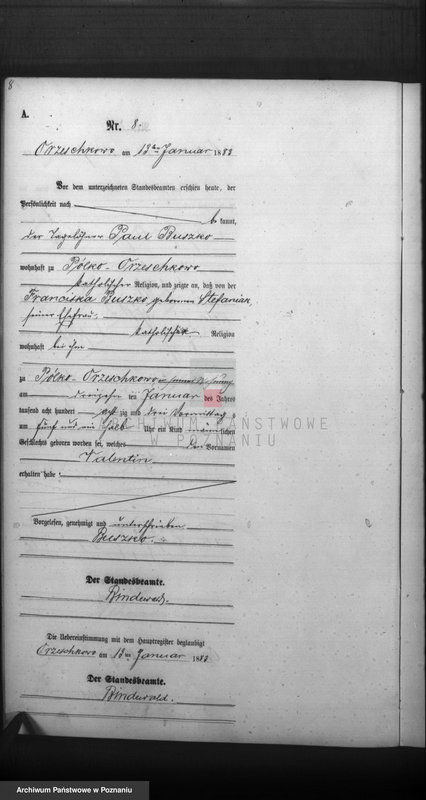 8
A.
Nr. 8.
Orzeschkowo am 13ten Januar 1883
Vor dem unterzeichneten Standesbeamten erschien heute, der
Persönlichkeit nach
be kannt,
der Tagelöhner Paul Buszko
wohnhaft zu Pólko-Orzeschkowo
katholischer Religion, und zeigte an, daß von der
Franciska Buszko geborenen Stefaniak,
seiner Ehefrau,
katholischer Religion
wohnhaft bei ihm
zu Pólko-Orzeschkowo in seiner Wohnung
am dreizehn ten Januar des Jahres
tausend acht hundert acht zig und drei Vormittags
um fünf und ein halb Uhr ein Kind männlichen
Geschlechts geboren worden sei, welches den Vornamen
Valentin
erhalten habe
Vorgelesen, genehmigt und unterschrieben
Buszko.
Der Standesbeamte.
Bindewald.
Die Uebereinstimmung mit dem Hauptregister beglaubigt
Orzeschkowo am 13ten Januar 1883
Der Standesbeamte.
Bindewald.
ARCHIWUM PAŃSTWOWE
W POZNANIU
Archiwum Państwowe w Poznaniu